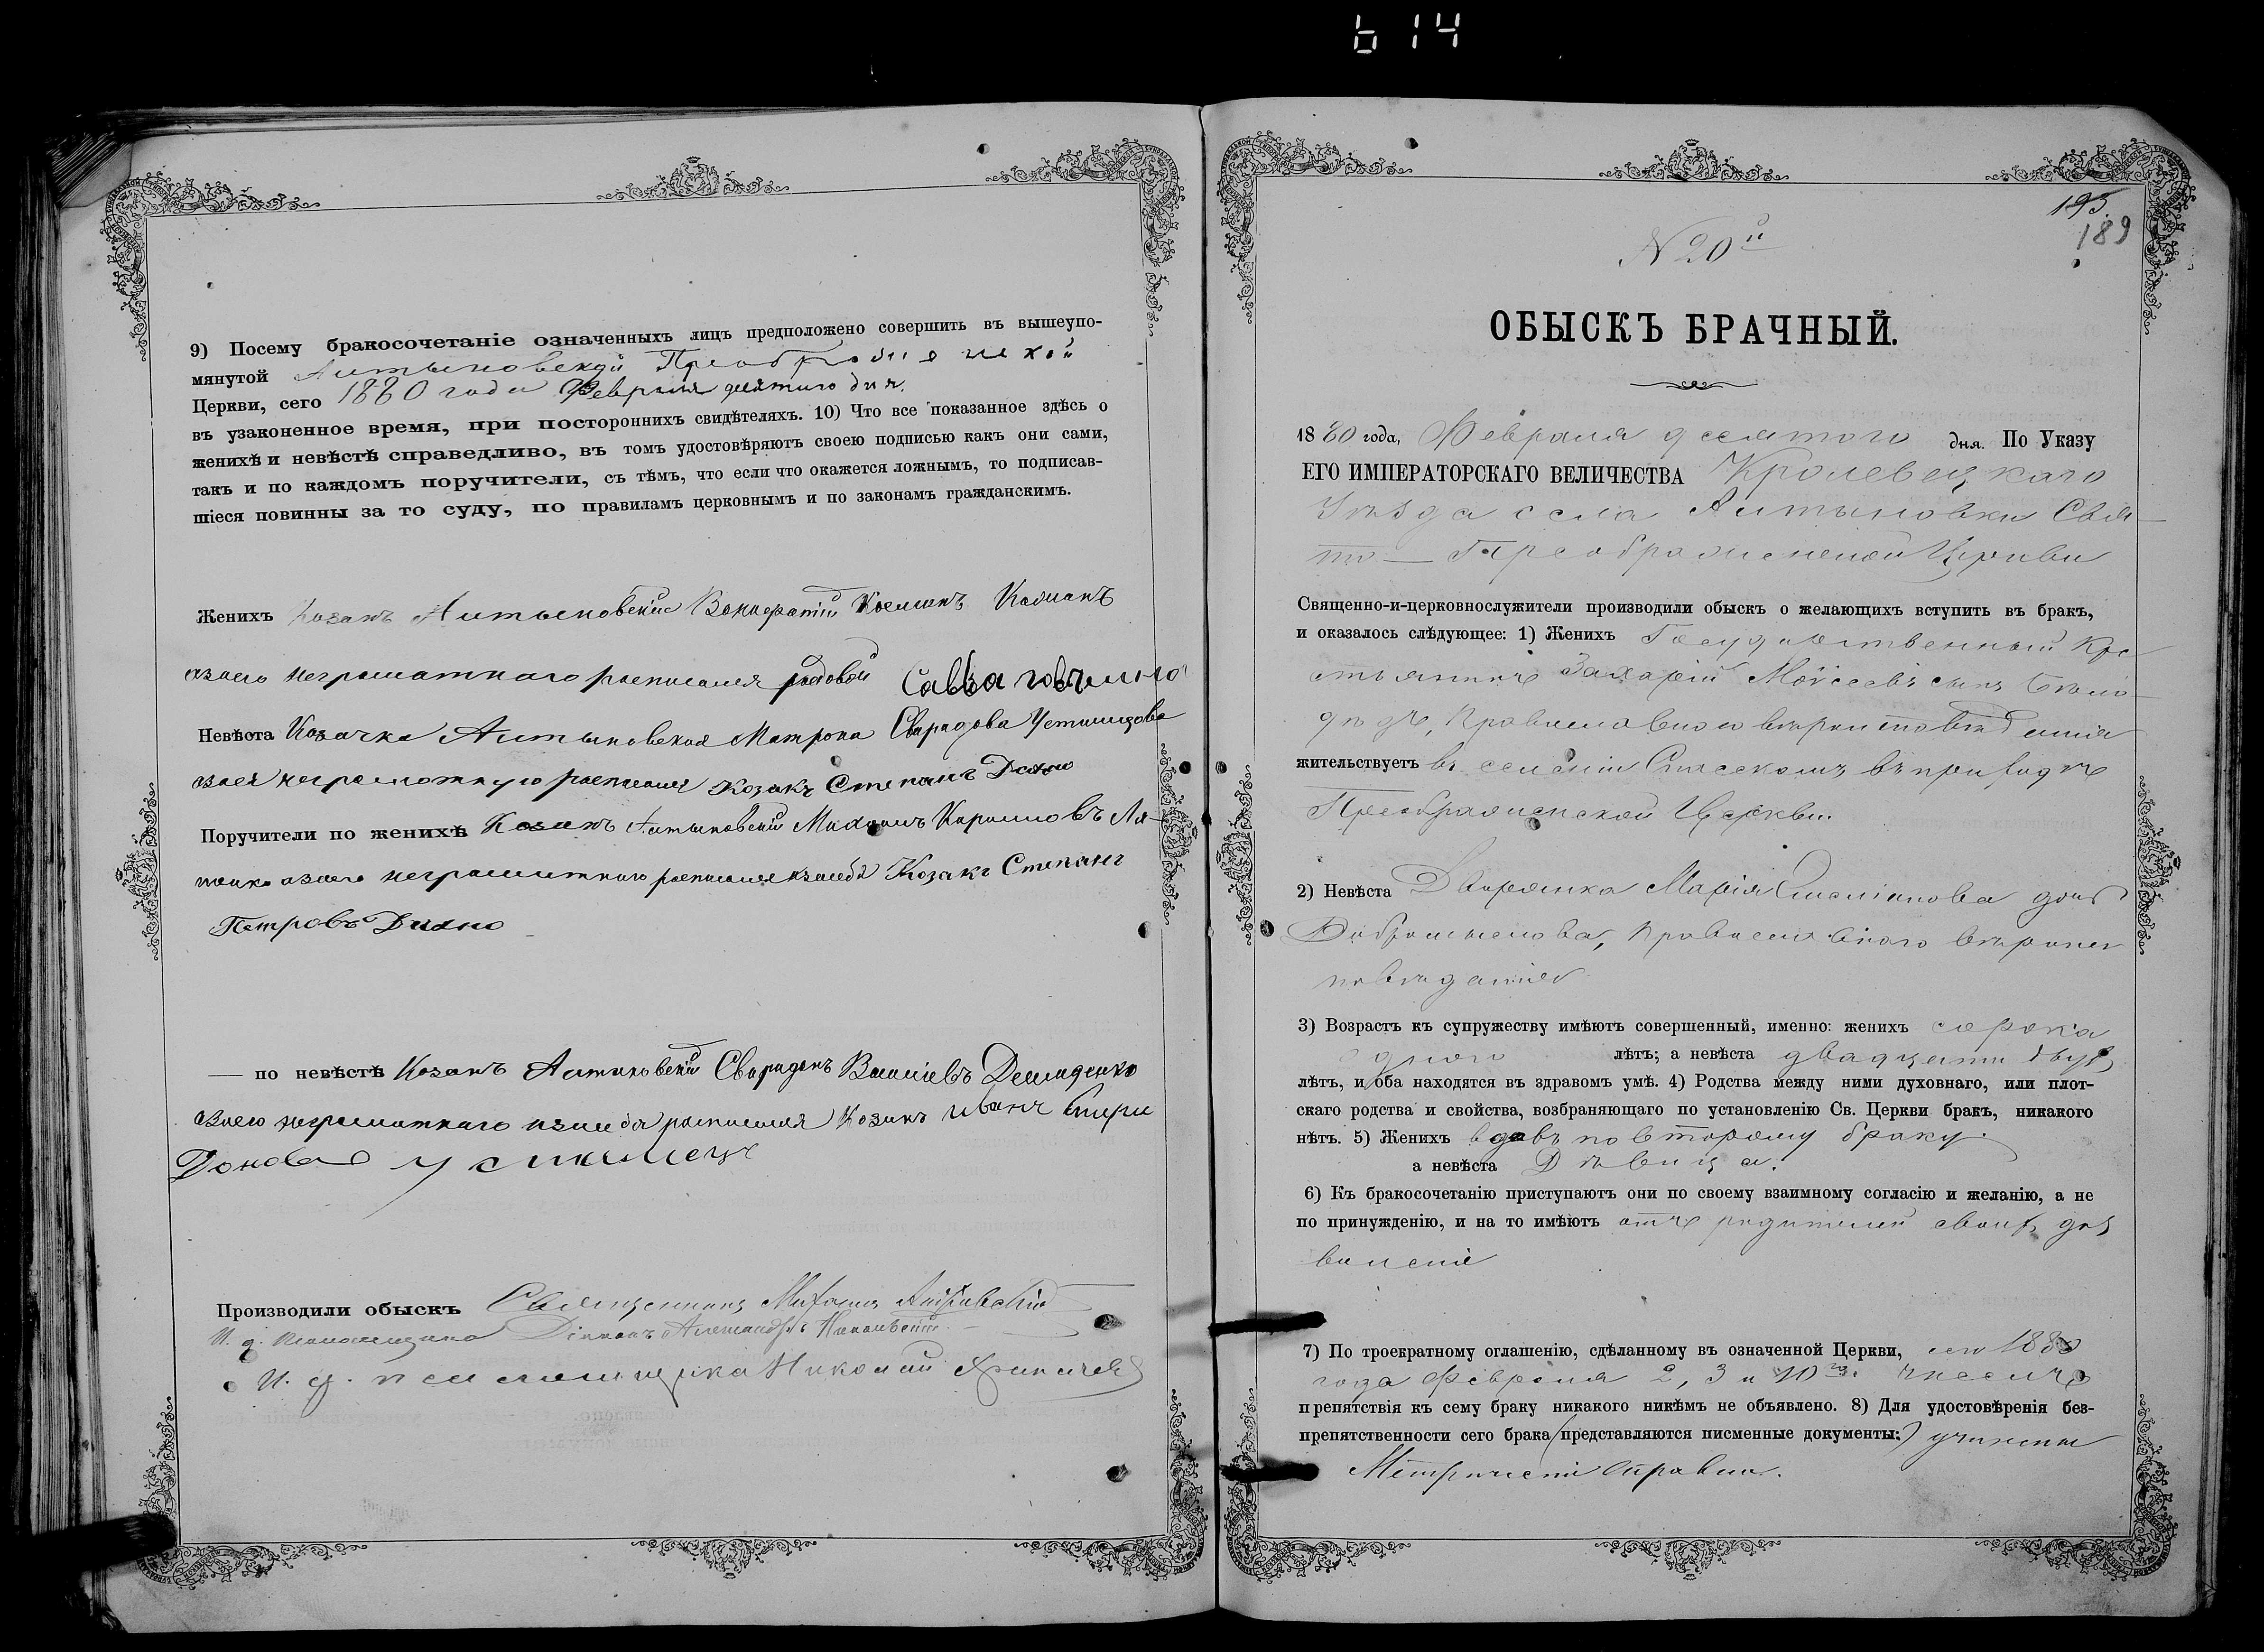 614
9) Посему бракосочетаніе означенныхъ лицъ предположено совершить въ вышеупо-
мянутой Алтыновской Преображенской
Церкви, сего 1880 года Февраля десятаго дня.
въ узаконенное время, при постороннихъ свидѣтеляхъ. 10) Что все показанное здѣсь о
женихѣ и невѣстѣ справедливо, въ томъ удостовѣряютъ своею подписью какъ они сами,
такъ и по каждомъ поручители, съ тѣмъ, что если что окажется ложнымъ, то подписав-
шіеся повинны за то суду, по правиламъ церковнымъ и по законамъ гражданскимъ.
Женихъ Козакъ Алтыновскій
неграмотнаго росписался рядовой Савва
Невѣста Козачка Алтыновская Матрона
росписался козакъ Степанъ
Поручители по женихѣ Козакъ Алтыновскій Михаилъ Кириловъ Ля-
неграмотнаго росписался Козакъ Степанъ
Петровъ
— по невѣстѣ Козакъ Алтыновскій Свиридонъ Демиденко
неграмотнаго росписался Козакъ Иванъ Спири
Донова
Производили обыскъ Священникъ Михаилъ
И. д. псаломщика Діаконъ Александръ
И. д. псаломщика Николай
195
189
N 20й
ОБЫСКЪ БРАЧНЫЙ.
1880 года, Февраля десятого дня. По Указу
ЕГО ИМПЕРАТОРСКАГО ВЕЛИЧЕСТВА Кролевецкаго
Уѣзда села Алтыновки Свя-
то-Преображенской Церкви
Священно-и-церковнослужители производили обыскъ о желающихъ вступить въ бракъ,
и оказалось слѣдующее: 1) Женихъ Государственный Кре
стьянинъ Захарій Моѵсеевъ сынъ Бѣло-
дѣдъ, Православного вѣроисповѣданія
жительствуетъ въ селеніи Спасскомъ въ приходѣ
Преображенской Церкви.
2) Невѣста Дворянка Марія дочь
Добромыслова, Православного вѣроис
повѣданія
3) Возрастъ къ супружеству имѣютъ совершенный, именно: женихъ сорока
одного лѣтъ; а невѣста двадцати двухъ
лѣтъ, и оба находятся въ здравомъ умѣ. 4) Родства между ними духовнаго, или плот-
скаго родства и свойства, возбраняющаго по установленію Св. Церкви бракъ, никакого
нѣтъ. 5) Женихъ вдовъ по второму браку.
а невѣста Дѣвица.
6) Къ бракосочетанію приступаютъ они по своему взаимному согласію и желанію, а не
по принужденію, и на то имѣютъ отъ родителей своихъ доз
воленіе
7) По троекратному оглашенію, сдѣланному въ означенной Церкви, сего 1880
года Февраля 2, 3 и 10го числъ
препятствія къ сему браку никакого никѣмъ не объявлено. 8) Для удостовѣренія без-
препятственности сего брака (представляются писменные документы:) учинены
Метрическія справки.